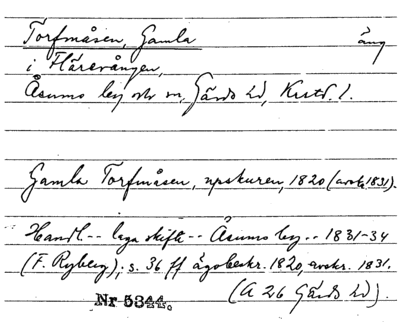 Torfmåsen, Gamla äng
i Flärevången,
Åsums by och sn, Gärds hd, Krist. l.
Gamla Torfmåsen, upskuren, 1820 (avskr. 1831).
Handl -- laga skifte -- Åsums by -- 1831-34
(F. Ryberg); s. 36 ff ägobeskr. 1820, avskr. 1831.
(A 26 Gärds hd).
Nr 5344.